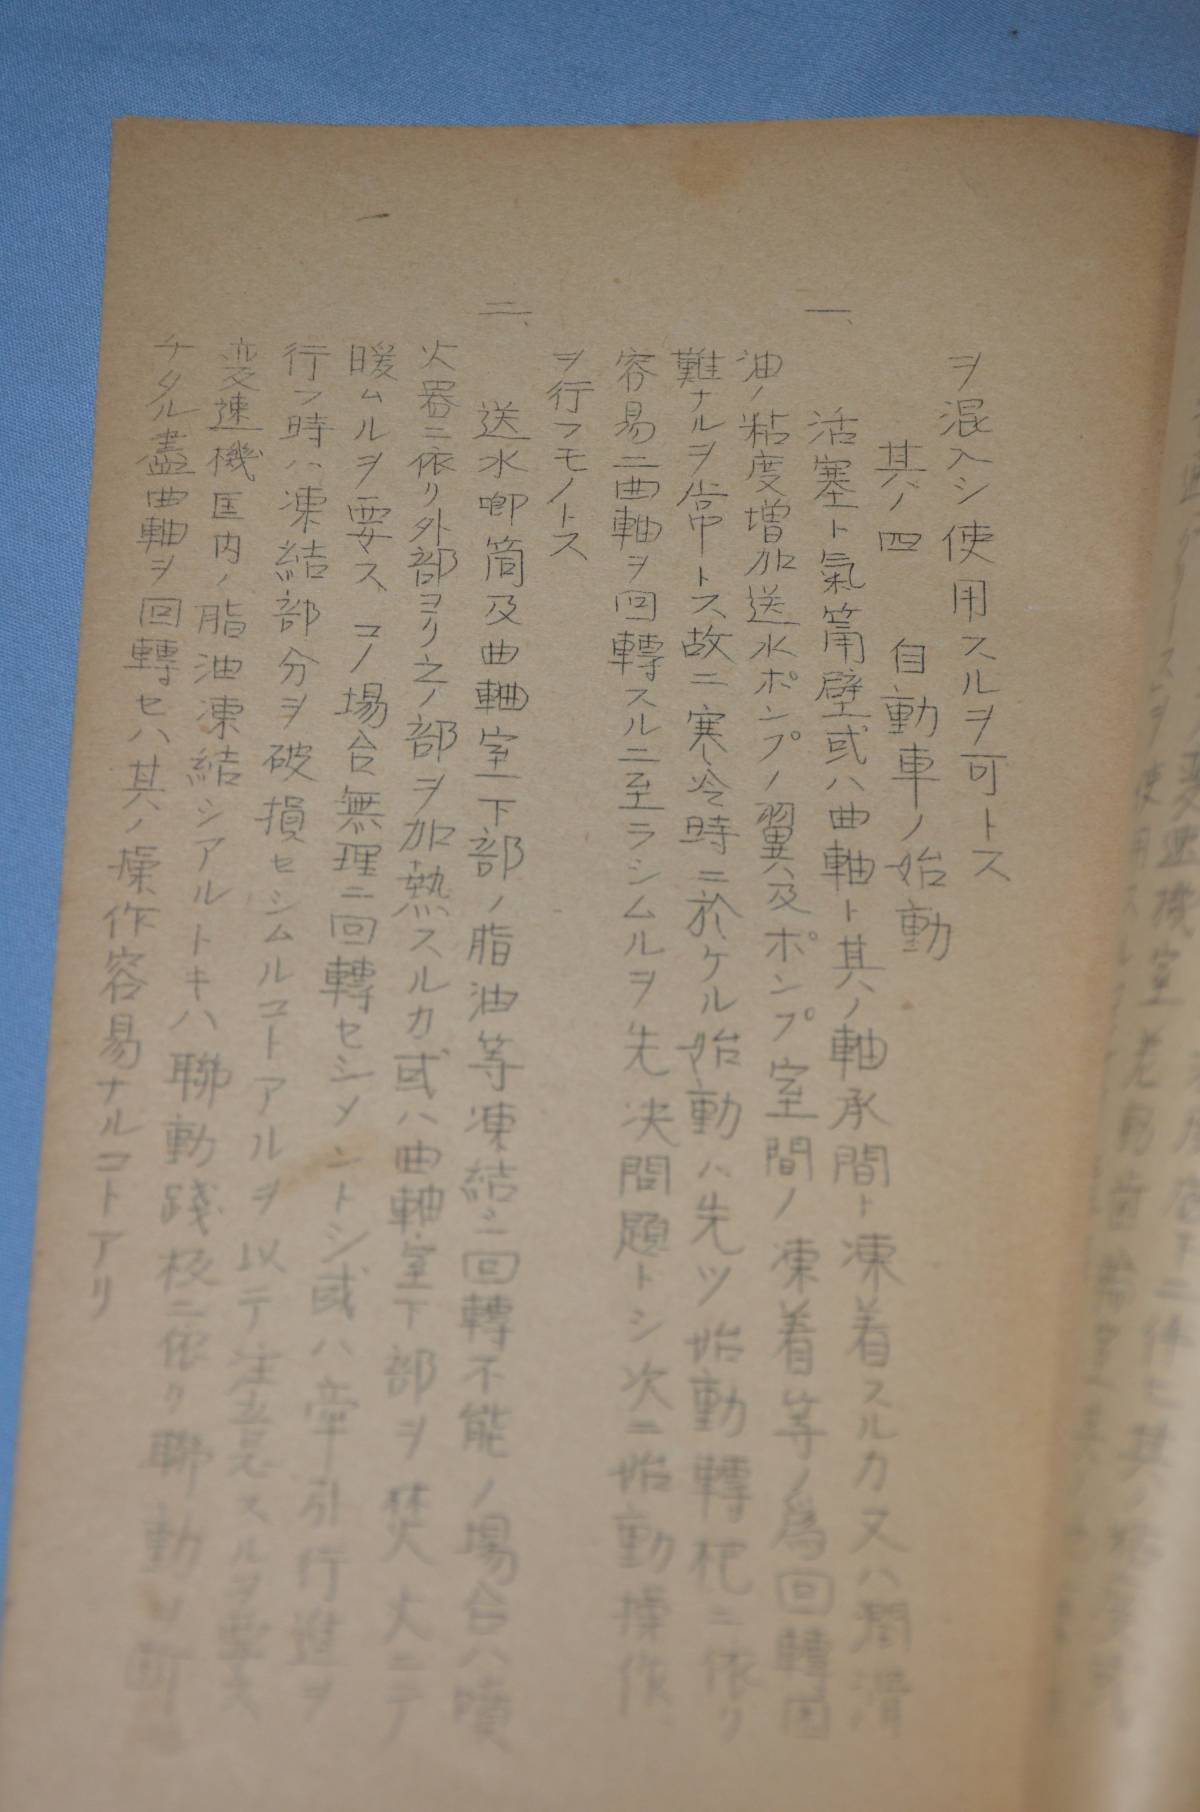 ヲ混入シ使用スルヲ可トス
其ノ四 自動車ノ始動
一、活塞ト氣筩壁或ハ曲軸ト其ノ軸承間ト凍着スルカ又ハ潤滑
油ノ粘度増加送水ポンプノ翼及ポンプ室間ノ凍着等ノ為回轉困
難ナルヲ常トス故ニ寒冷時ニ於ケル始動ハ先ツ始動轉把ニ依リ
容易ニ曲軸ヲ回轉スルニ至ラシムルヲ先決問題トシ次ニ始動操作
ヲ行フモノトス
二、送水喞筒及曲軸室下部ノ脂油等凍結シ回轉不能ノ場合ハ噴
火器ニ依リ外部ヨリ之ノ部ヲ加熱スルカ或ハ曲軸室下部ヲ焚火ニテ
暖ムルヲ要ス、コノ場合無理ニ回轉セシメントシ或ハ牽引行進ヲ
行フ時ハ凍結部分ヲ破損セシムルコトアルヲ以テ注意スルヲ要ス
変速機匡内ノ脂油凍結シアルトキハ聯動践板ニ依リ聯動ヲ断
チタル儘曲軸ヲ回轉セハ其ノ操作容易ナルコトアリ